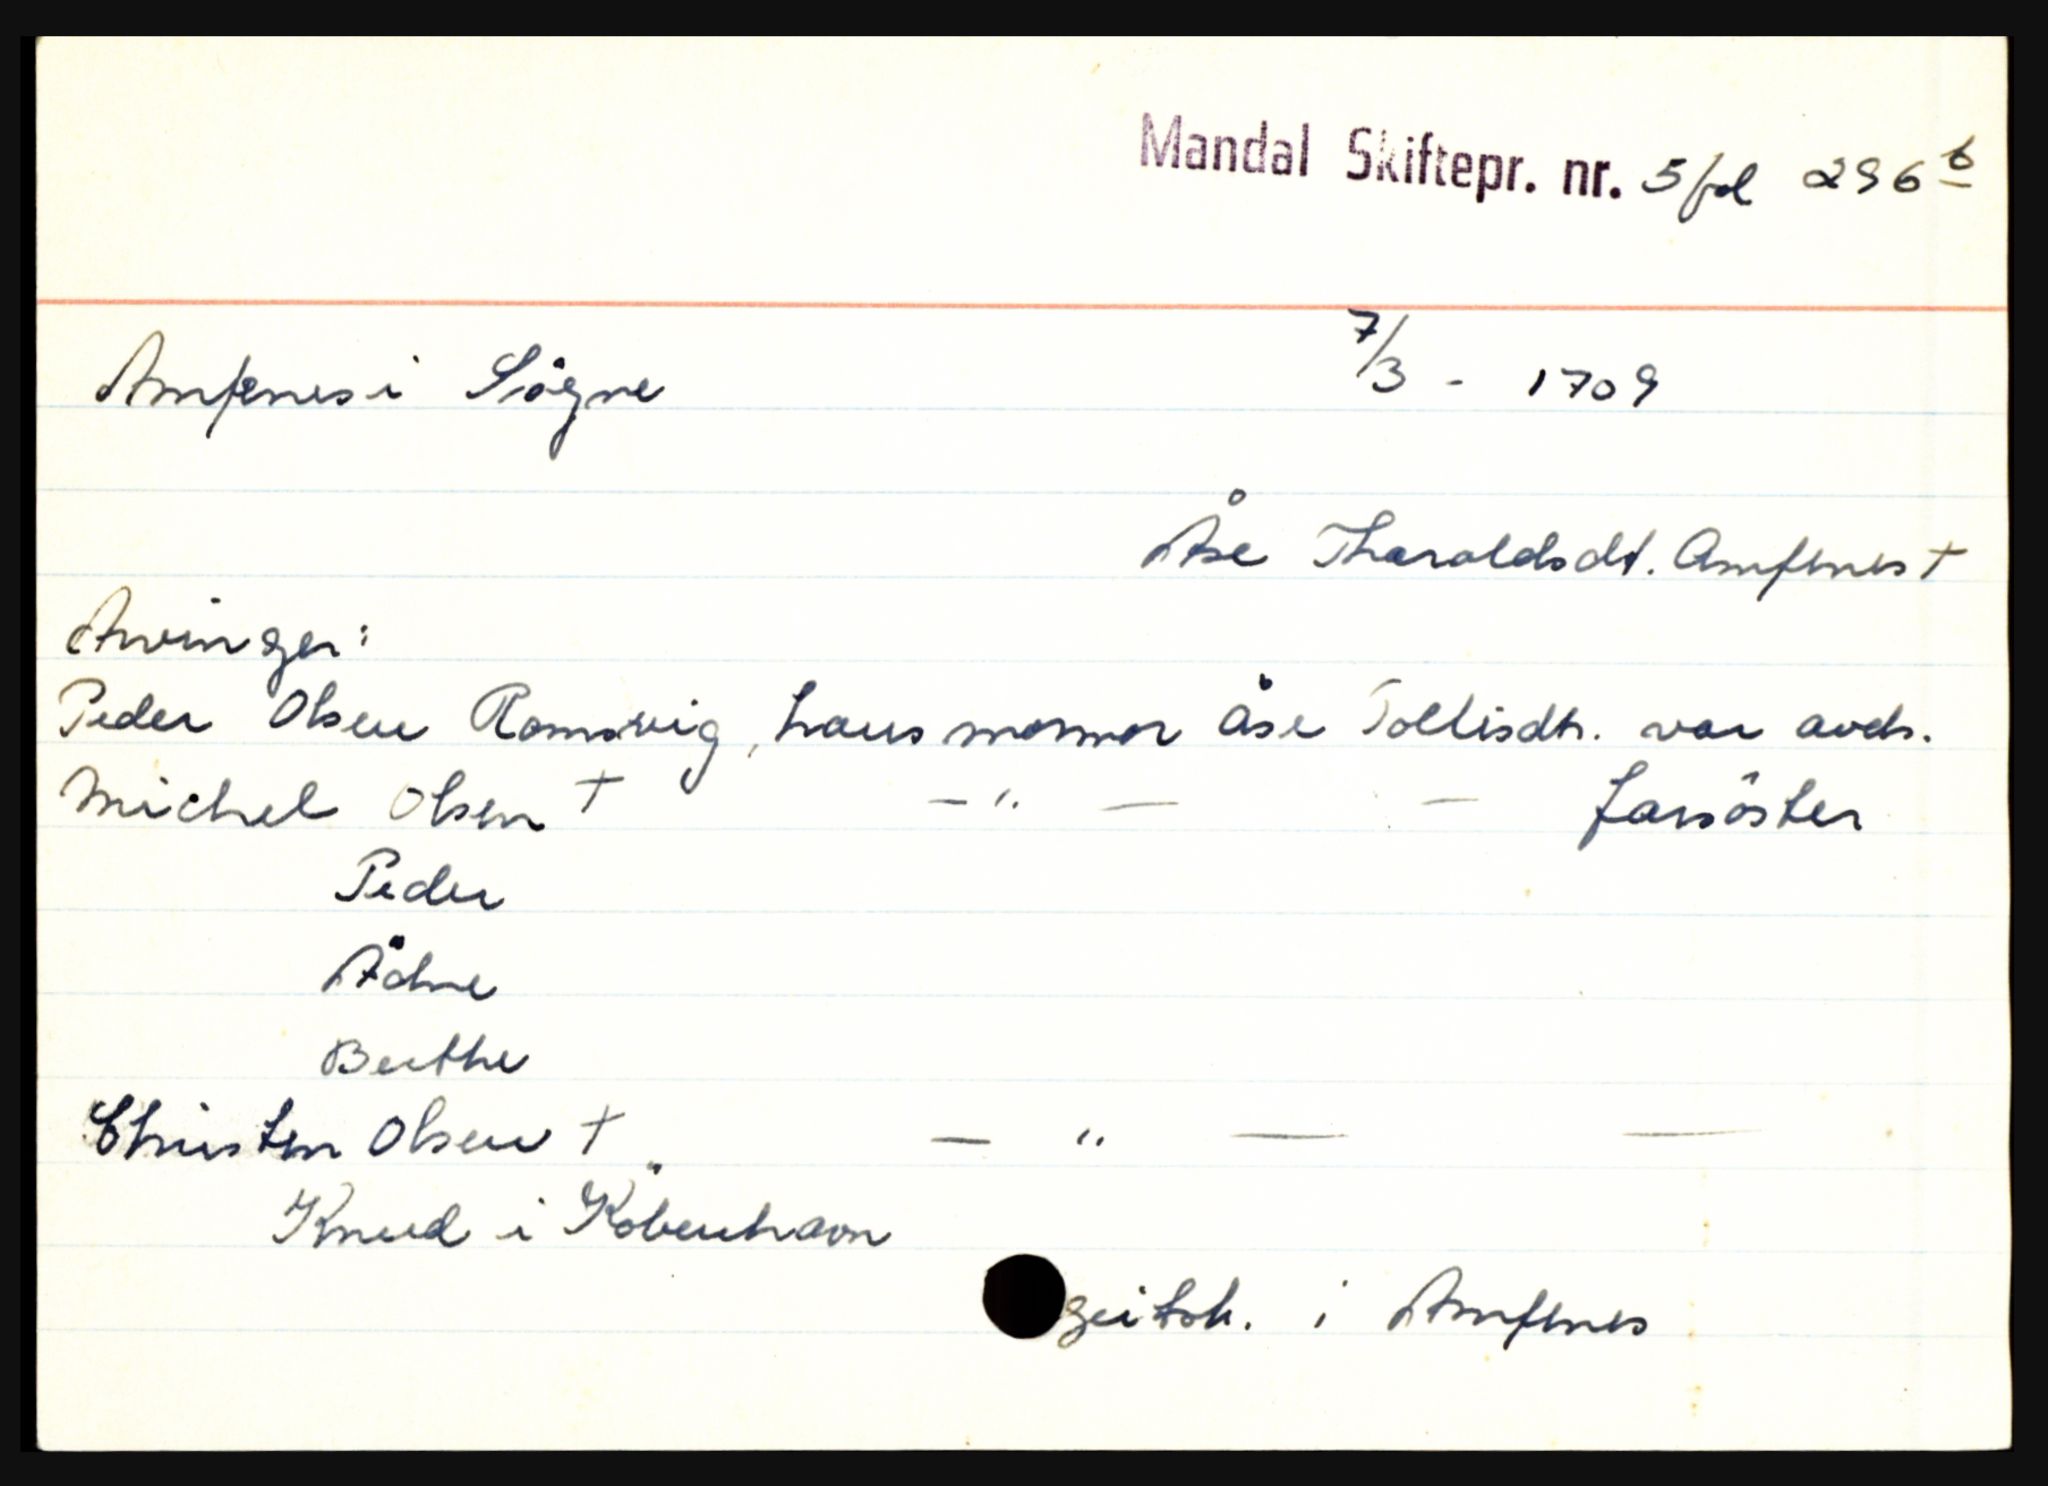 Mandal Skiftepr. nr. 5 fol 296 b
Amfenes i Sögne 7/3 - 1709
Åse Tharaldsdt. Amfenes †
Arvinger:
Peder Olsen Romsvig, hans mormor åse Tollisdtr. var avds.
Michel Olsen † — " — — farsöster
Peder
Ådne
Berthe
Christen Olsen † — " — —
Knud i Köbenhavn
i Amfenes